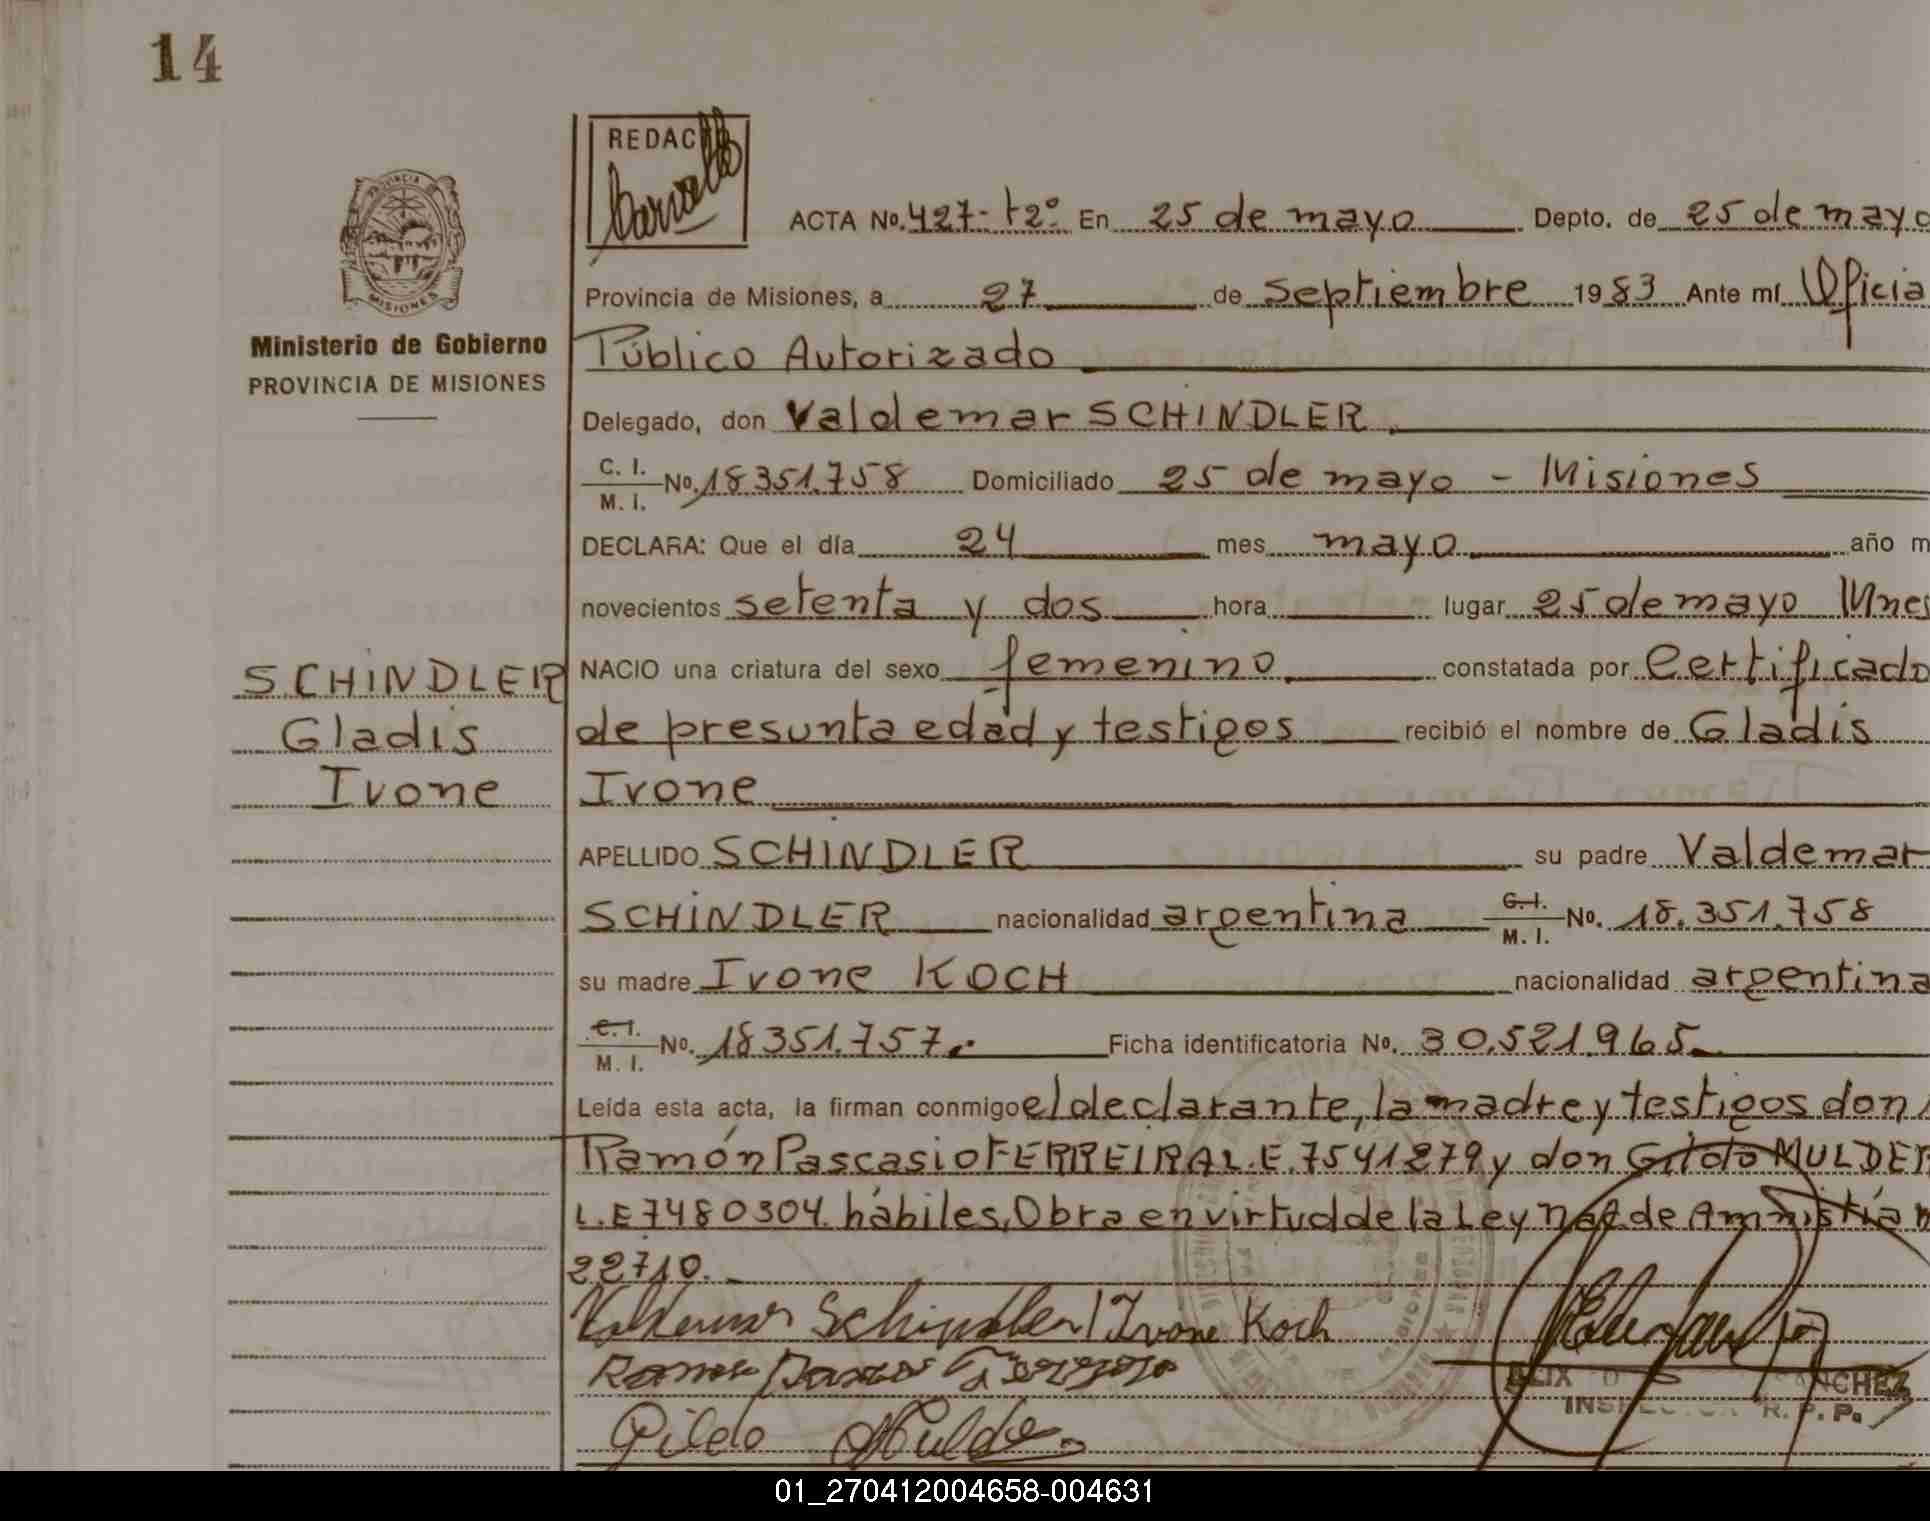 14
REDAC
ACTA No. 427- t2° En 25 de mayo Depto. de 25 de mayo
PROVINCIA DE
MISIONES
Provincia de Misiones, a 27 de Septiembre 1983 Ante mí Oficia
Ministerio de Gobierno
PROVINCIA DE MISIONES
Público Autorizado
Delegado, don Valdemar SCHINDLER.
C. I.
M. I. No. 18351.758 Domiciliado 25 de mayo - Misiones
DECLARA: Que el día 24 mes mayo año m
novecientos setenta y dos hora lugar 25 de mayo Mnes
SCHINDLER
Gladis
Ivone
NACIO una criatura del sexo femenino constatada por Certificado
de presunta edad y testigos recibió el nombre de Gladis
Ivone
APELLIDO SCHINDLER su padre Valdemar
SCHINDLER nacionalidad argentina C. I. M. I. No. 18.351.758
su madre Ivone KOCH nacionalidad argentina
C. I. M. I. No. 18351.757. Ficha identificatoria No. 30.521.965.
Leída esta acta, la firman conmigo el declarante, la madre y testigos don
Ramón Pascasio FERREIRA L.E. 7541279 y don Gildo MULDER
L.E 7480304. hábiles, Obra en virtud de la Ley Nac de Amnistía n
22710.
Valdemar Schindler / Ivone Koch
Gildo Mulder
SANCHEZ
R. P. P.
01_270412004658-004631